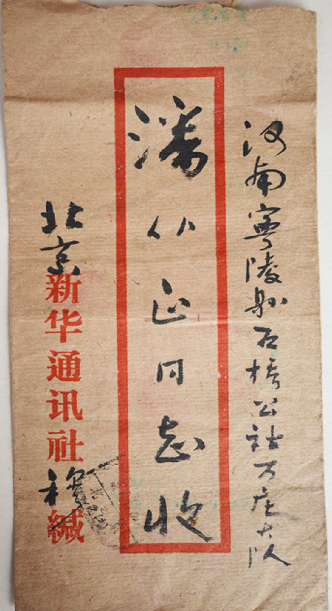 河南宁陵县石桥公社万庄大队
潘从正同志收
北京新华通讯社穆缄